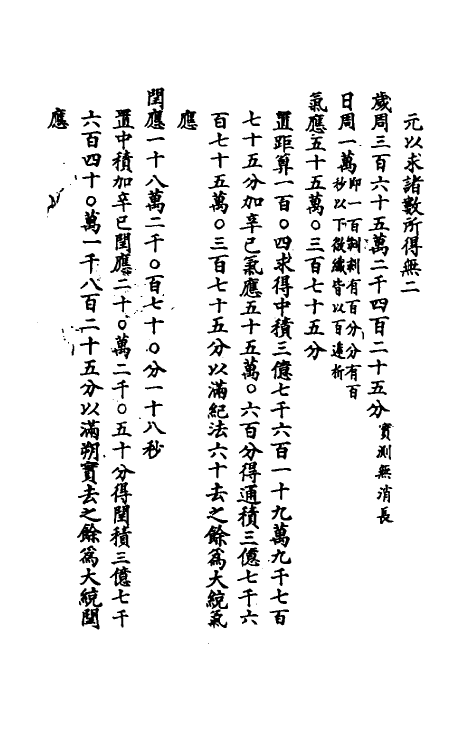 元以求諸數所得無二
歲周三百六十五萬二千四百二十五分實測無消長
日周一萬即一百刻刻有百分分有百秒以下微纖皆以百遞析
氣應五十五萬○三百七十五分
置距算一百○四求得中積三億七千六百一十九萬九千七百
七十五分加辛巳氣應五十五萬○六百分得通積三億七千六
百七十五萬○三百七十五分以滿紀法六十去之餘為大統氣
應
閏應一十八萬二千○百七十○分一十八秒
置中積加辛巳閏應二十○萬二千○五十分得閏積三億七千
六百四十○萬一千八百二十五分以滿朔實去之餘為大統閏
應